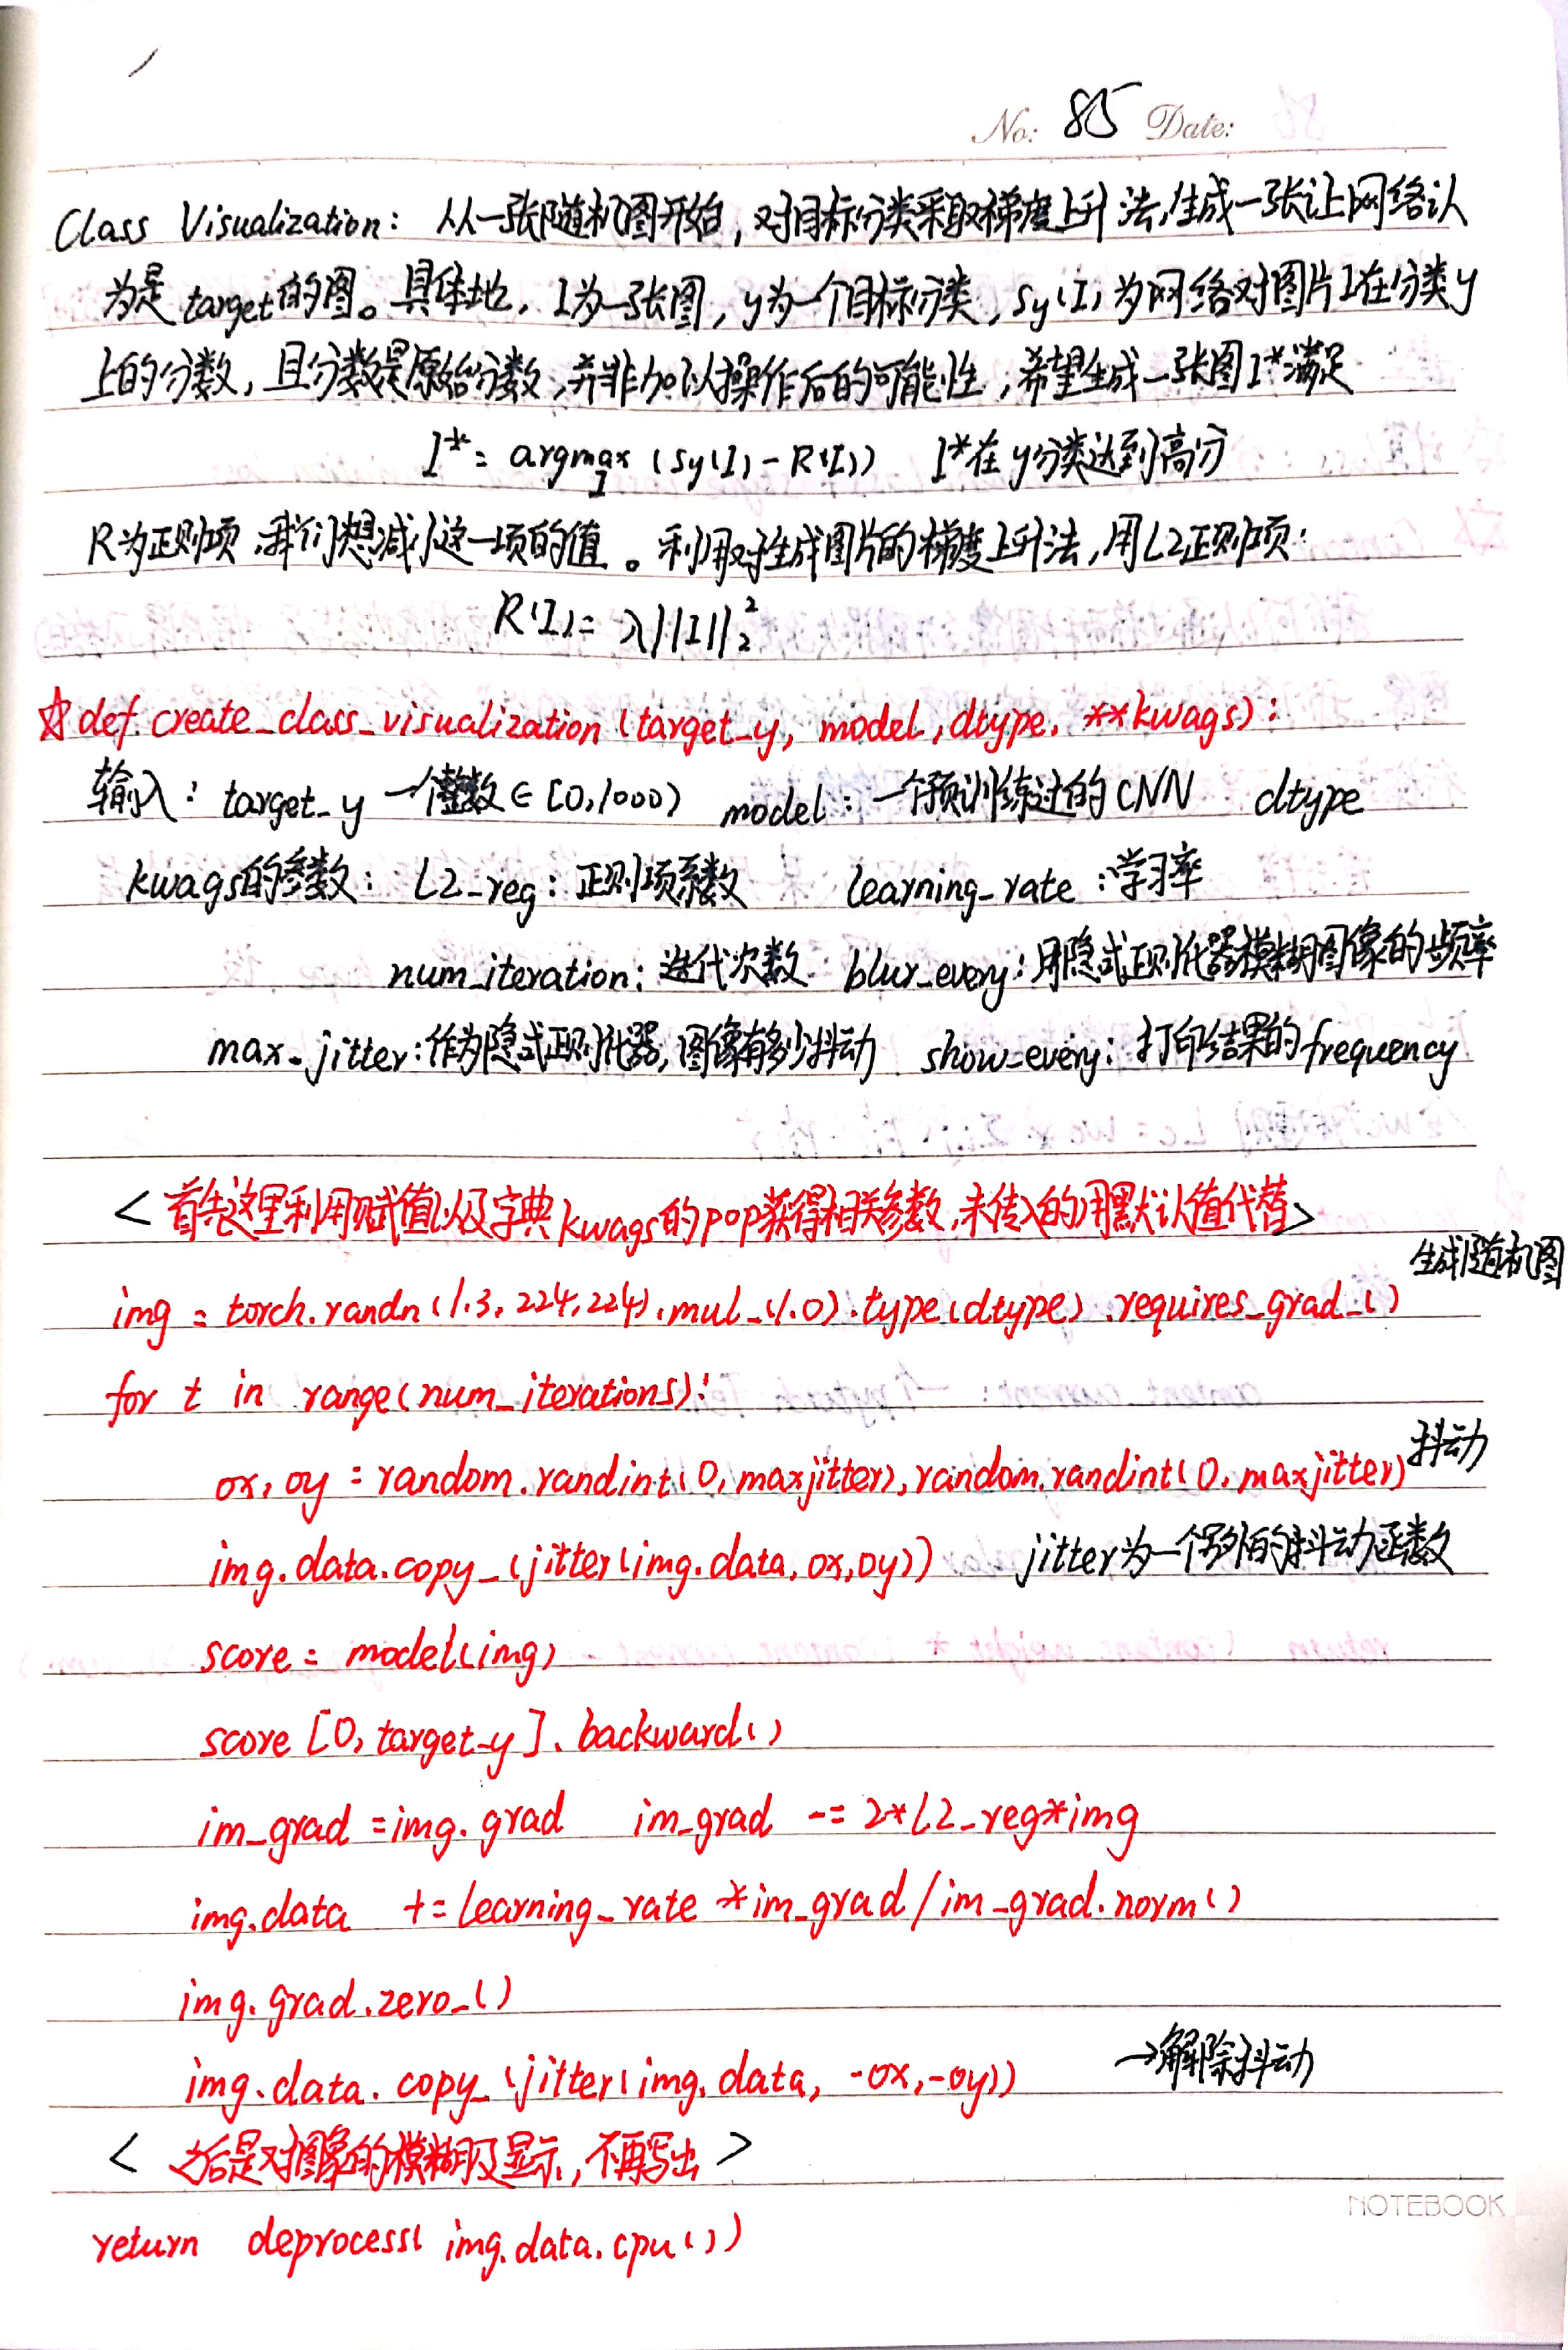 No: 85 Date:
Class Visualization: 从一张随机图开始,对目标分类采取梯度上升法,生成一张让网络认
为是target的图。具体地,I为一张图,y为一个目标分类,Sy(I)为网络对图片I在分类y
上的分数,且分数是原始分数,并非加以操作后的可能性,希望生成一张图I*满足
I* = argmax (Sy(I) - R(I)) I*在y分类达到高分
I
R为正则项,我们想减小这一项的值。利用对生成图片的梯度上升法,用L2正则项:
R(I) = λ||I||₂²
☆ def create_class_visualization (target_y, model, dtype, **kwags):
输入: target_y 一个整数∈[0,1000) model: 一个预训练过的CNN dtype
kwags的参数: L2_reg: 正则项系数 learning_rate: 学习率
num_iteration: 迭代次数 blur_every: 用隐式正则化器模糊图像的频率
max_jitter: 作为隐式正则化器,图像有多少抖动 show_every: 打印结果的frequency
<首先这里利用赋值以及字典kwags的pop获得相关参数,未传入的用默认值代替>
生成随机图
img = torch.randn(1,3,224,224).mul_(1.0).type(dtype).requires_grad_()
for t in range(num_iterations):
ox, oy = random.randint(0, maxjitter), random.randint(0, maxjitter) 抖动
img.data.copy_(jitter(img.data, ox, oy)) jitter为一个另外的抖动函数
score = model(img)
score [0, target_y].backward()
im_grad = img.grad im_grad -= 2*L2_reg*img
img.data += learning_rate * im_grad / im_grad.norm()
img.grad.zero_()
img.data.copy_(jitter(img.data, -ox, -oy)) →解除抖动
< 之后是对图象的模糊及显示,不再写出 >
return deprocess(img.data.cpu())
NOTEBOOK